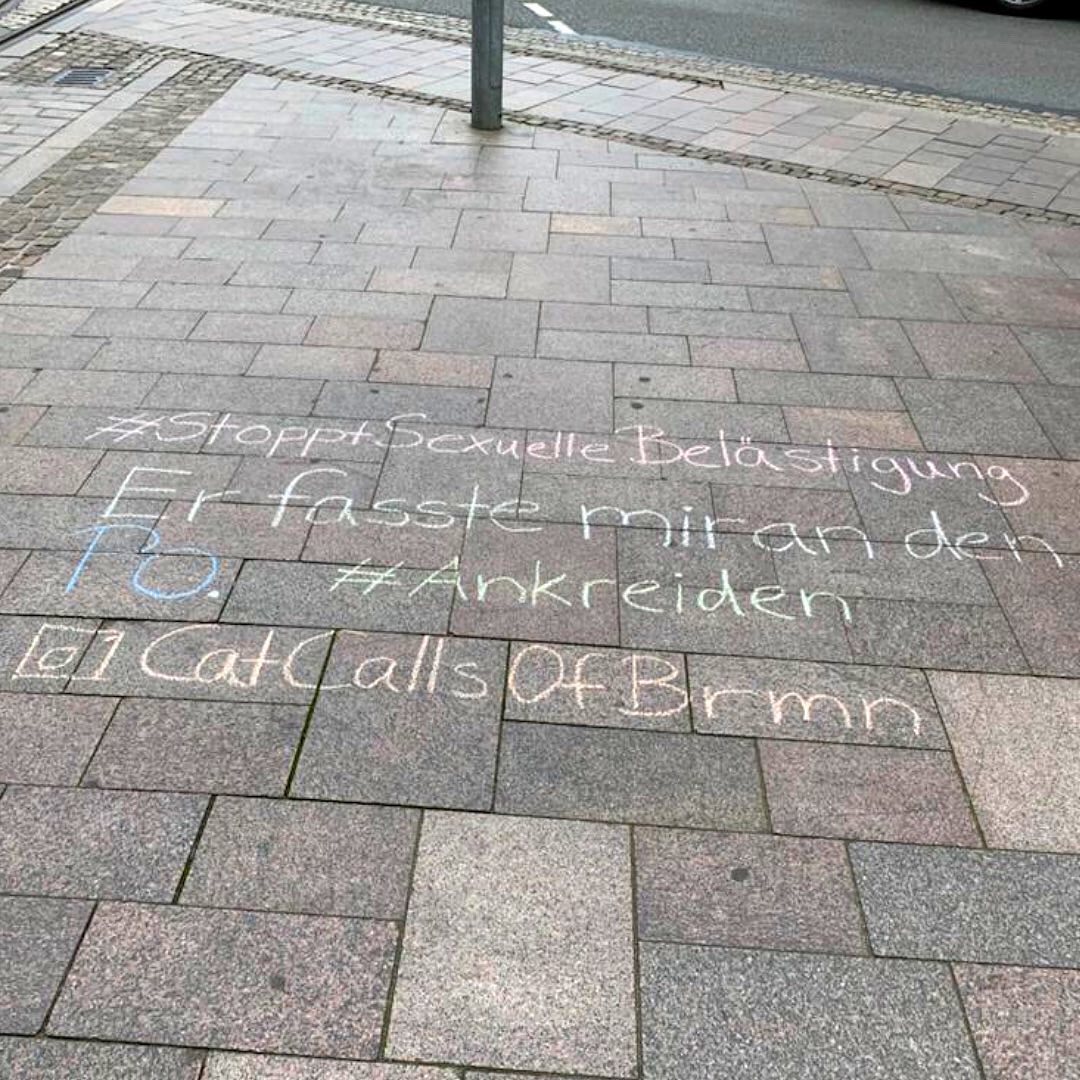 #StopptSexuelleBelästigung
Er fasste mir an den
Po. #Ankreiden
CatCallsOfBrmn